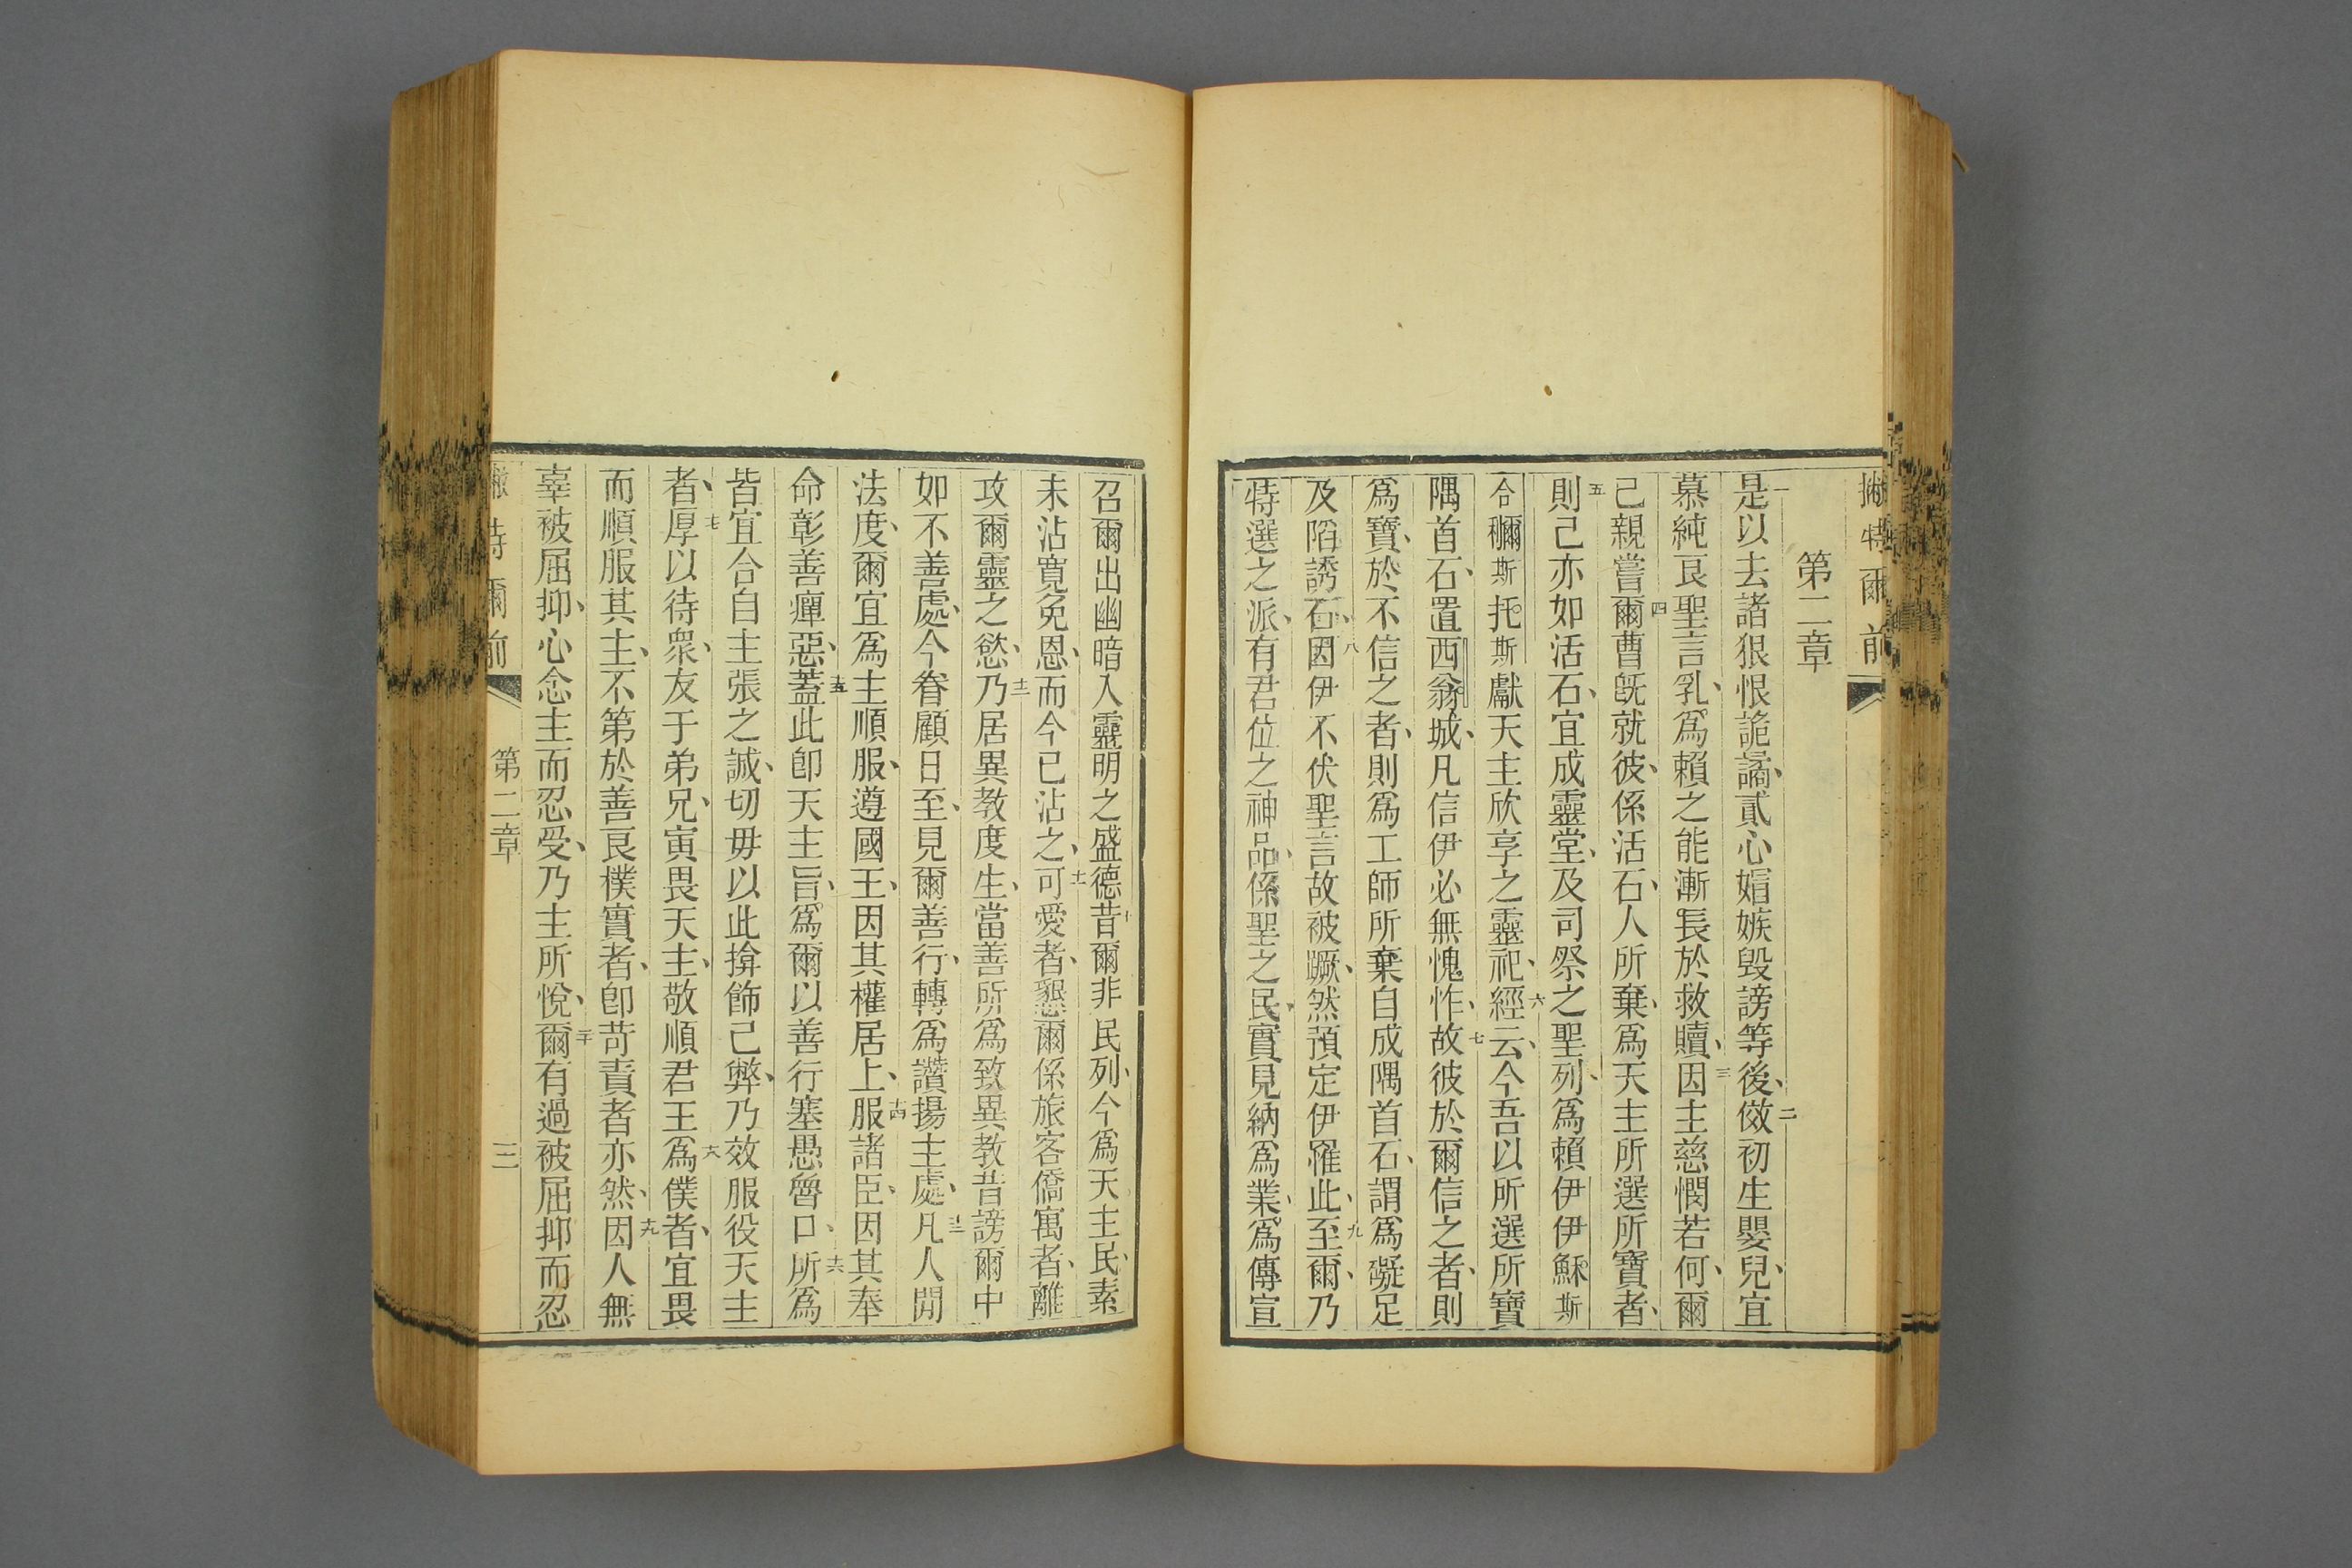 特爾前
第二章
一是以去諸狠恨詭譎、貳心媢嫉毀謗等後、二傚初生嬰兒、宜
慕純良聖言乳、爲賴之能漸長於救贖、三因主慈憫若何、爾
己親嘗、四爾曹旣就彼、係活石、人所棄、爲天主所選所寶者、
五則己亦如活石、宜成靈堂、及司祭之聖列、爲賴伊伊穌斯
合穪斯托斯獻天主欣享之靈祀、六經云、今吾以所選所寶
隅首石、置西翁城、凡信伊必無愧怍、七故彼於爾信之者、則
爲寶、於不信之者、則爲工師所棄自成隅首石、謂爲礙足
及陷誘石、八因伊不伏聖言故被蹶、然預定伊罹此、九至爾、乃
特選之派、有君位之神品、係聖之民、實見納爲業、爲傳宣
召爾出幽暗入靈明之盛德、十昔爾非民列、今爲天主民、素
未沾寬免恩、而今已沾之、十一可愛者、懇爾係旅客僑寓者、離
攻爾靈之慾、十二乃居異教度生、當善所爲、致異教昔謗爾中
如不善處、今眷顧日至、見爾善行、轉爲讚揚主處、十三凡人閒
法度、爾宜爲主順服、遵國王、因其權居上、十四服諸臣、因其奉
命彰善癉惡、十五蓋此卽天主旨、爲爾以善行塞愚魯口、十六所爲
皆宜合自主張之誠、切毋以此揜飾己弊、乃效服役天主
者、十七厚以待衆、友于弟兄、寅畏天主、敬順君王、十八爲僕者、宜畏
而順服其主、不第於善良樸實者、卽苛責者亦然、十九因人無
辜被屈抑、心念主而忍受、乃主所悅、二十爾有過被屈抑而忍
特爾前
第二章
三